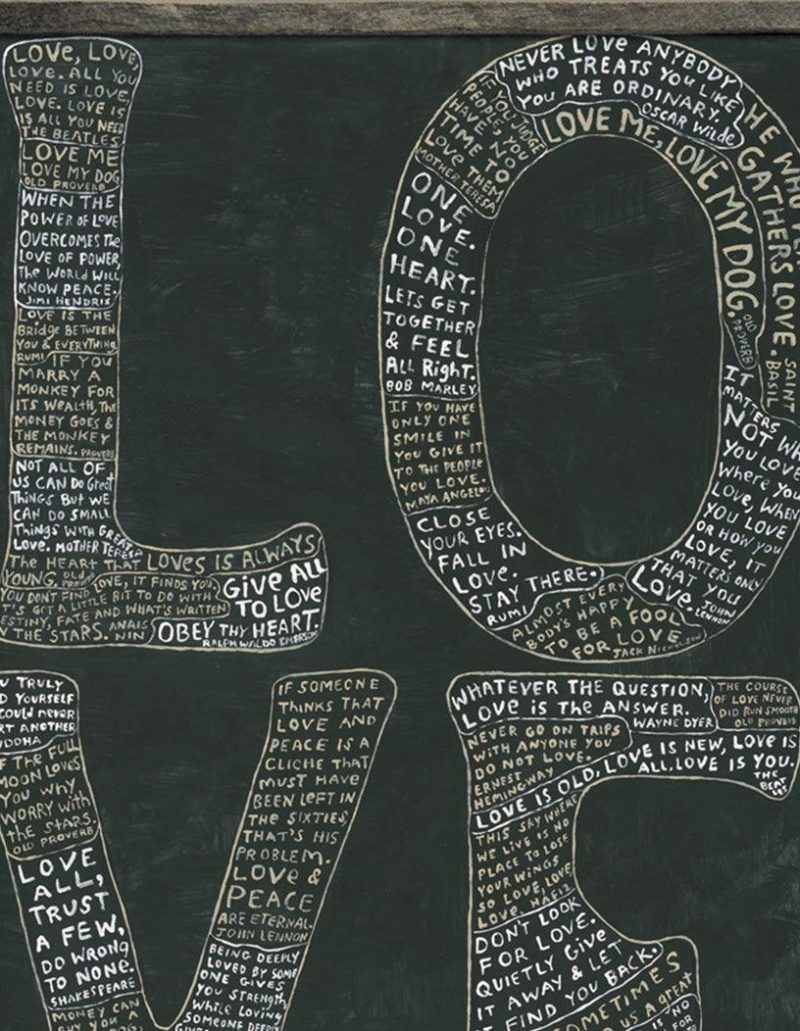 LOVE, LOVE,
LOVE. ALL YOU
NEED IS LOVE,
LOVE. LOVE IS
IS ALL YOU NEED
THE BEATLES
LOVE ME
LOVE MY DOG
OLD PROVERB
WHEN THE
POWER OF LOVE
OVERCOMES THE
LOVE OF POWER,
THE WORLD WILL
KNOW PEACE.
JIMI HENDRIX
LOVE IS THE
BRIDGE BETWEEN
YOU & EVERYTHING
RUMI IF YOU
MARRY A
MONKEY FOR
ITS WEALTH, THE
MONEY GOES &
THE MONKEY
REMAINS. PROVERB
NOT ALL OF
US CAN DO GREAT
THINGS BUT WE
CAN DO SMALL
THINGS WITH GREAT
LOVE. MOTHER TERESA
THE HEART THAT LOVES IS ALWAYS
YOUNG. OLD PROVERB
LOVE, IT FINDS YOU
YOU DON'T FIND
T'S GOT A LITTLE BIT TO DO WITH
ESTINY, FATE AND WHAT'S WRITTEN
THE STARS. ANAIS NIN
GIVE ALL
TO LOVE
OBEY THY HEART.
RALPH WALDO EMERSON
NEVER LOVE ANYBODY
WHO TREATS YOU LIKE
YOU ARE ORDINARY.
OSCAR WILDE
IF YOU JUDGE
PEOPLE, YOU
HAVE NO
TIME TO
LOVE THEM
MOTHER TERESA
LOVE ME, LOVE MY DOG.
OLD PROVERB
HE WHO
GATHERS LOVE.
SAINT BASIL
ONE
LOVE.
ONE
HEART.
LETS GET
TOGETHER
& FEEL
ALL RIGHT.
BOB MARLEY
IF YOU HAVE
ONLY ONE
SMILE IN
YOU GIVE IT
TO THE PEOPLE
YOU LOVE.
MAYA ANGELOU
CLOSE
YOUR EYES.
FALL IN
LOVE.
STAY THERE.
RUMI
ALMOST EVERY
BODY'S HAPPY
TO BE A FOOL
FOR LOVE
JACK NICHOLSON
IT
MATTERS
NOT WH
YOU LOVE
WHERE YOU
LOVE, WHEN
YOU LOVE
OR HOW YOU
LOVE, IT
MATTERS ONLY
THAT YOU
LOVE. JOHN LENNON
U TRULY
D YOURSELF
COULD NEVER
RT ANOTHER
UDDHA
F THE FULL
MOON LOVES
YOU WHY
WORRY WITH
THE STARS.
OLD PROVERB
LOVE
ALL,
TRUST
A FEW,
DO WRONG
TO NONE.
SHAKESPEARE
MONEY CAN
BUY YOU A
IF SOMEONE
THINKS THAT
LOVE AND
PEACE IS A
CLICHE THAT
MUST HAVE
BEEN LEFT IN
THE SIXTIES,
THAT'S HIS
PROBLEM.
LOVE &
PEACE
ARE ETERNAL.
JOHN LENNON
BEING DEEPLY
LOVED BY SOME
ONE GIVES
YOU STRENGTH,
WHILE LOVING
SOMEONE DEEPLY
WHATEVER THE QUESTION,
LOVE IS THE ANSWER.
WAYNE DYER
THE COURSE
OF LOVE NEVER
DID RUN SMOOTH
OLD PROVERB
NEVER GO ON TRIPS
WITH ANYONE YOU
DO NOT LOVE.
ERNEST
HEMINGWAY
LOVE IS OLD, LOVE IS NEW, LOVE IS
ALL. LOVE IS YOU.
THE BEATLES
THIS SKY WHERE
WE LIVE IS NO
PLACE TO LOSE
YOUR WINGS
SO LOVE, LOVE
LOVE. HAFIZ
DON'T LOOK
FOR LOVE.
QUIETLY GIVE
IT AWAY & LET
IT FIND YOU BACK.
SOMETIMES
US A GREAT
NO
FOR